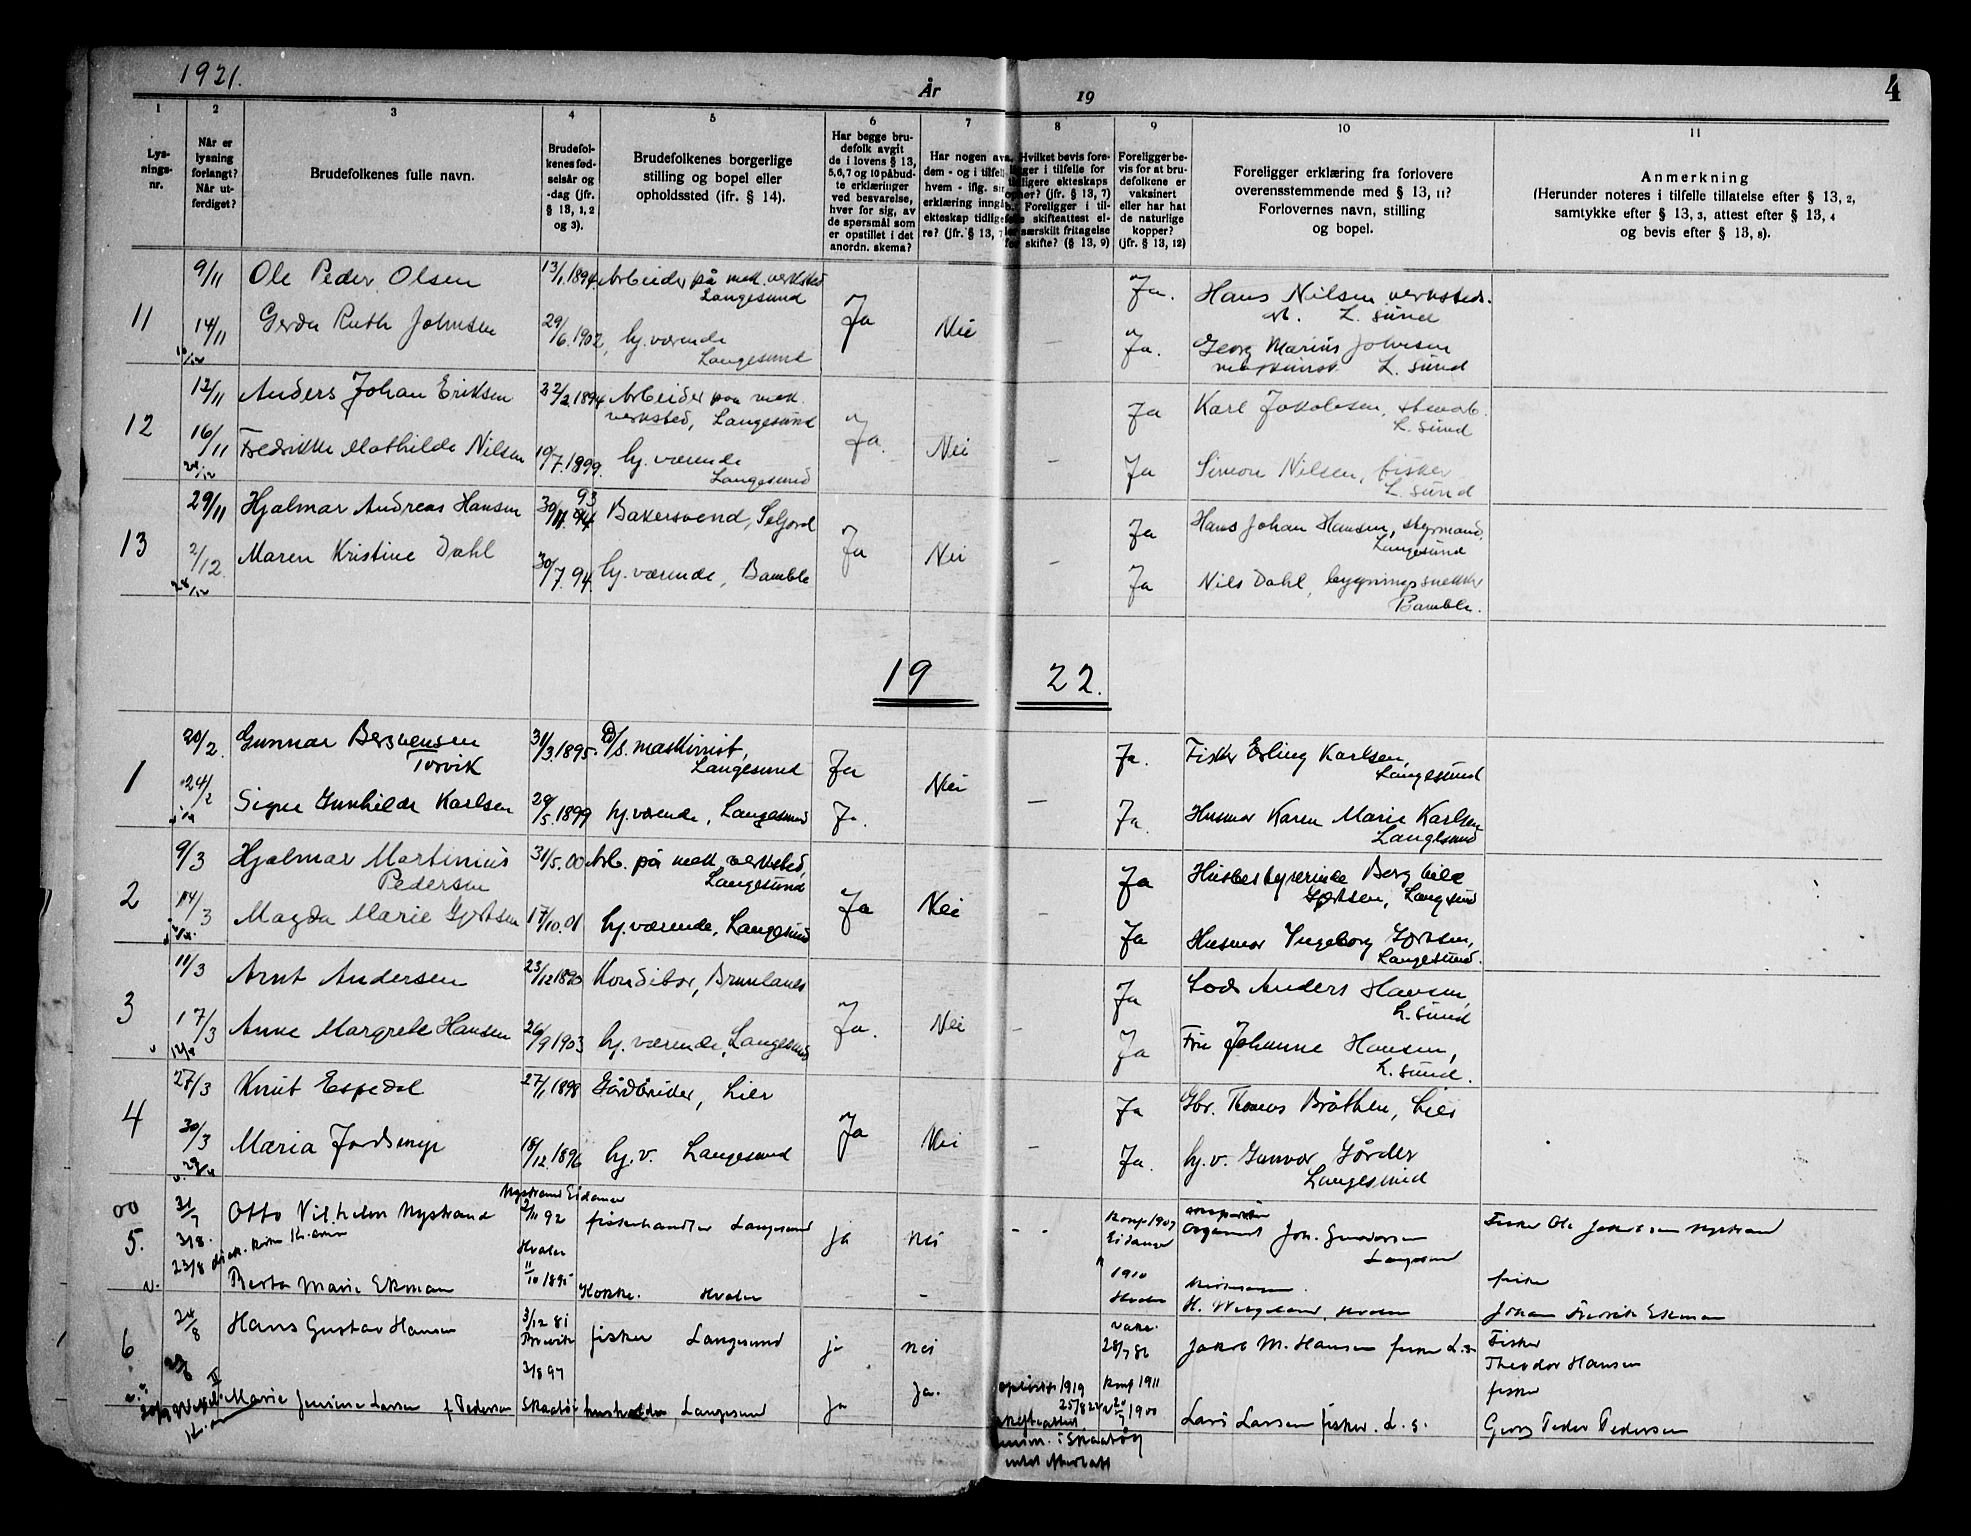 1921.
År
19
4
1
2
3
4
5
6
7
8
9
10
11
Lys-
nings-
nr.
Når er
lysning
forlangt?
Når ut-
ferdiget?
Brudefolkenes fulle navn.
Brudefol-
kenes fød-
selsår og
-dag (jfr.
§ 13, 1, 2
og 3).
Brudefolkenes borgerlige
stilling og bopel eller
opholdssted (ifr. § 14).
Har begge bru-
defolk avgit
de i lovens § 13,
5, 6, 7 og 10 påbud-
te erklæringer
ved besvarelse,
hver for sig, av
de spørsmål som
er opstillet i det
anordn. skema?
Har nogen av
dem - og i tilfelle
hvem - iflg. sin
erklæring inngå
ekteskap tidlige-
re? (jfr. § 13, 7
Hvilket bevis fore-
ligger i tilfelle for
tidligere ekteskaps
ophør? (jfr. § 13, 7)
Foreligger i til-
felle skifteattest el-
ler særskilt fritagelse
for skifte? (§ 13, 9)
Foreligger be-
vis for at bru-
defolkene er
vaksinert
eller har hat
de naturlige
kopper?
(jfr. § 13, 12)
Foreligger erklæring fra forlovere
overensstemmende med § 13, 11?
Forlovernes navn, stilling
og bopel.
Anmerkning
(Herunder noteres i tilfelle tillatelse efter § 13, 2,
samtykke efter § 13, 3, attest efter § 13, 4
og bevis efter § 13, 8).
11
9/11 Ole Peder Olsen 13/1.1894 Arbeider på mek. verksted
Langesund
Ja Nei Ja. Hans Nilsen verksteds.
L. sund
14/11 Gerda Ruth Johnsen 29/6.1902, hj.værende
Langesund
Ja. Georg Marius Johnsen
maskinist L. sund
12
12/11 Anders Johan Eriksen 22/2.1894 Arbeider paa mek.
verksted, Langesund
Ja. Nei Ja Karl Jakobsen,
L. sund
16/11 Fredrikke Mathilde Nilsen 19/7.1899. hj. værende
Langesund
Ja Simon Nilsen, fisker
L. sund
13
29/11 Hjalmar Andreas Hansen 30/11 94 93 Bakersvend, Seljord
Ja Nei Ja Hans Johan Hansen, styrmand,
Langesund
2/12. Maren Kristine Dahl 30/7.94. hj. værende, Bamble
Ja Nils Dahl, bygningssnekker
Bamble.
19 22.
1
20/2. Gunnar Bersvensen
Torvik
31/3.1895. D/S. maskinist,
Langesund
Ja Nei Ja. Fisker Erling Karlsen,
Langesund
24/2 Signe Gunhilde Karlsen 29/5.1899 hj.værende, Langesund
Ja. Ja. Husmor Karen Marie Karlsen
Langesund
2
9/3 Hjalmar Martinius
Pedersen
31/5.00 Arb. på mek. verksted,
Langesund
Ja Nei Ja Husbestyrerinde Borghild
Gjertsen, Langesund
14/3 Magda Marie Gjertsen 17/10.01 hj.værende, Langesund
Ja Husmor Ingeborg Gjertsen,
Langesund.
3
11/3 Arnt Andersen 23/12 1890 Konditor, Brunlanes
Ja. Nei Ja Lods Anders Hansen,
L. sund
17/3 Anne Margrete Hansen 26/9 1903 hj. værende, Langesund
Ja Fru Johanne Hansen,
L. sund.
4
27/3 Knut Espedal 27/1.1898 Gårdbruker, Lier
Ja Nei Ja Gbr. Thomas Bråthen, Lier
30/3 Maria Jordsmyr 18/12.1896 hj. v. Langesund
Ja. hj. v. Gunvor Gårder
Langesund
5.
31/7 Otto Vilhelm Nystrand Nystrand Eidanger
2/11 92 fiskehandler Langesund ja nei Konf 1907
Eidanger Joh. Gundersen
Langesund
3/8.
23/8
Berta Marie Ekman Hvaler
11/10 1895 Kokke. Hvaler 1910
Hvaler
H. Wergeland, Hvaler
fisker
Johan Fredrik Ekman
6
24/8 Hans Gustav Hansen 3/12 81
Brevik fisker Langesund ja nei vaks.
28/7 86 Jakob M. Hansen fisker L.s. Fisker
Theodor Hansen
Marie Jensine Larsen f Pedersen 3/8 97
Skaatøi Langesund ja ja. opløst 1919
25/8 22
Konf 1911
1900 Lars Larsen fisker. L. s. fisker
Georg Peder Pedersen